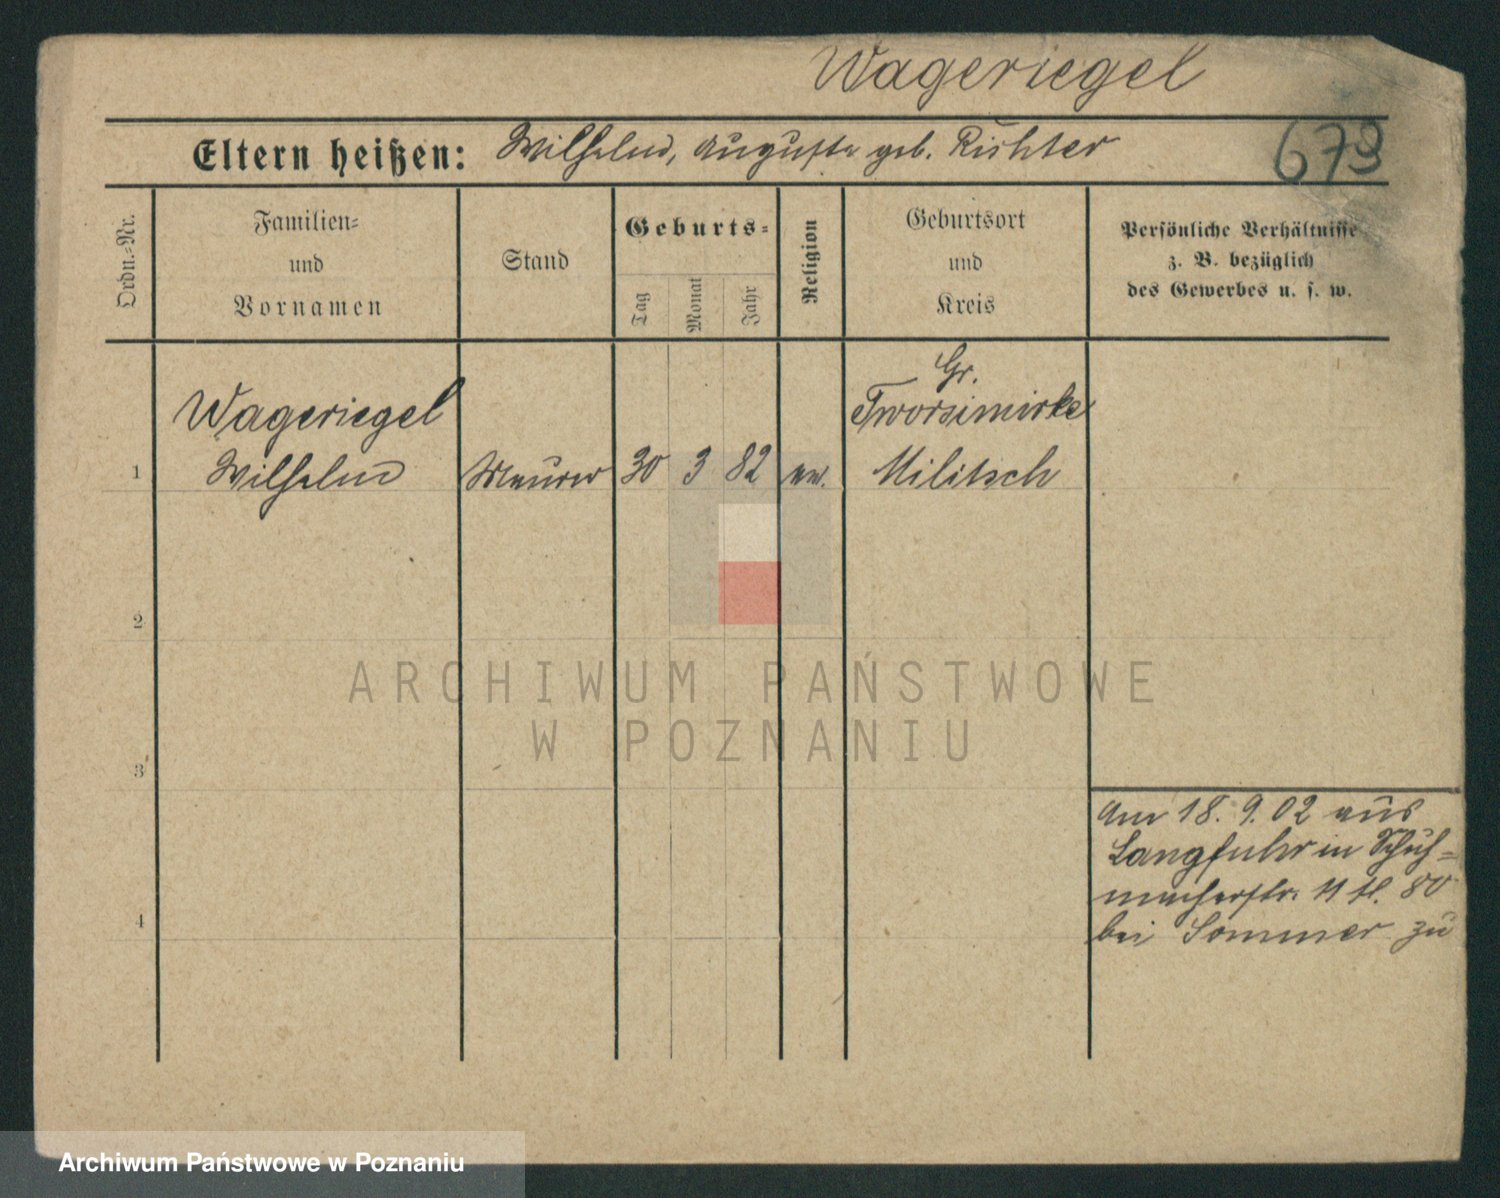 Wageriegel
Eltern heißen: Wilhelm, Auguste geb. Richter
673
Ordn.-Nr.
Familien-
und
Vornamen
Stand
Geburts-
Tag
Monat
Jahr
Religion
Geburtsort
und
Kreis
Persönliche Verhältnisse
z. B. bezüglich
des Gewerbes u. s. w.
Gr.
Wageriegel Tworsimirke
1 Wilhelm Maurer 30 3 82 ev. Militsch
2
ARCHIWUM PAŃSTWOWE
W POZNANIU
3
Am 18. 9. 02 aus
Langfuhr in Schuh-
macherstr. 11 tl. 80
4 bei Sommer zu
Archiwum Państwowe w Poznaniu